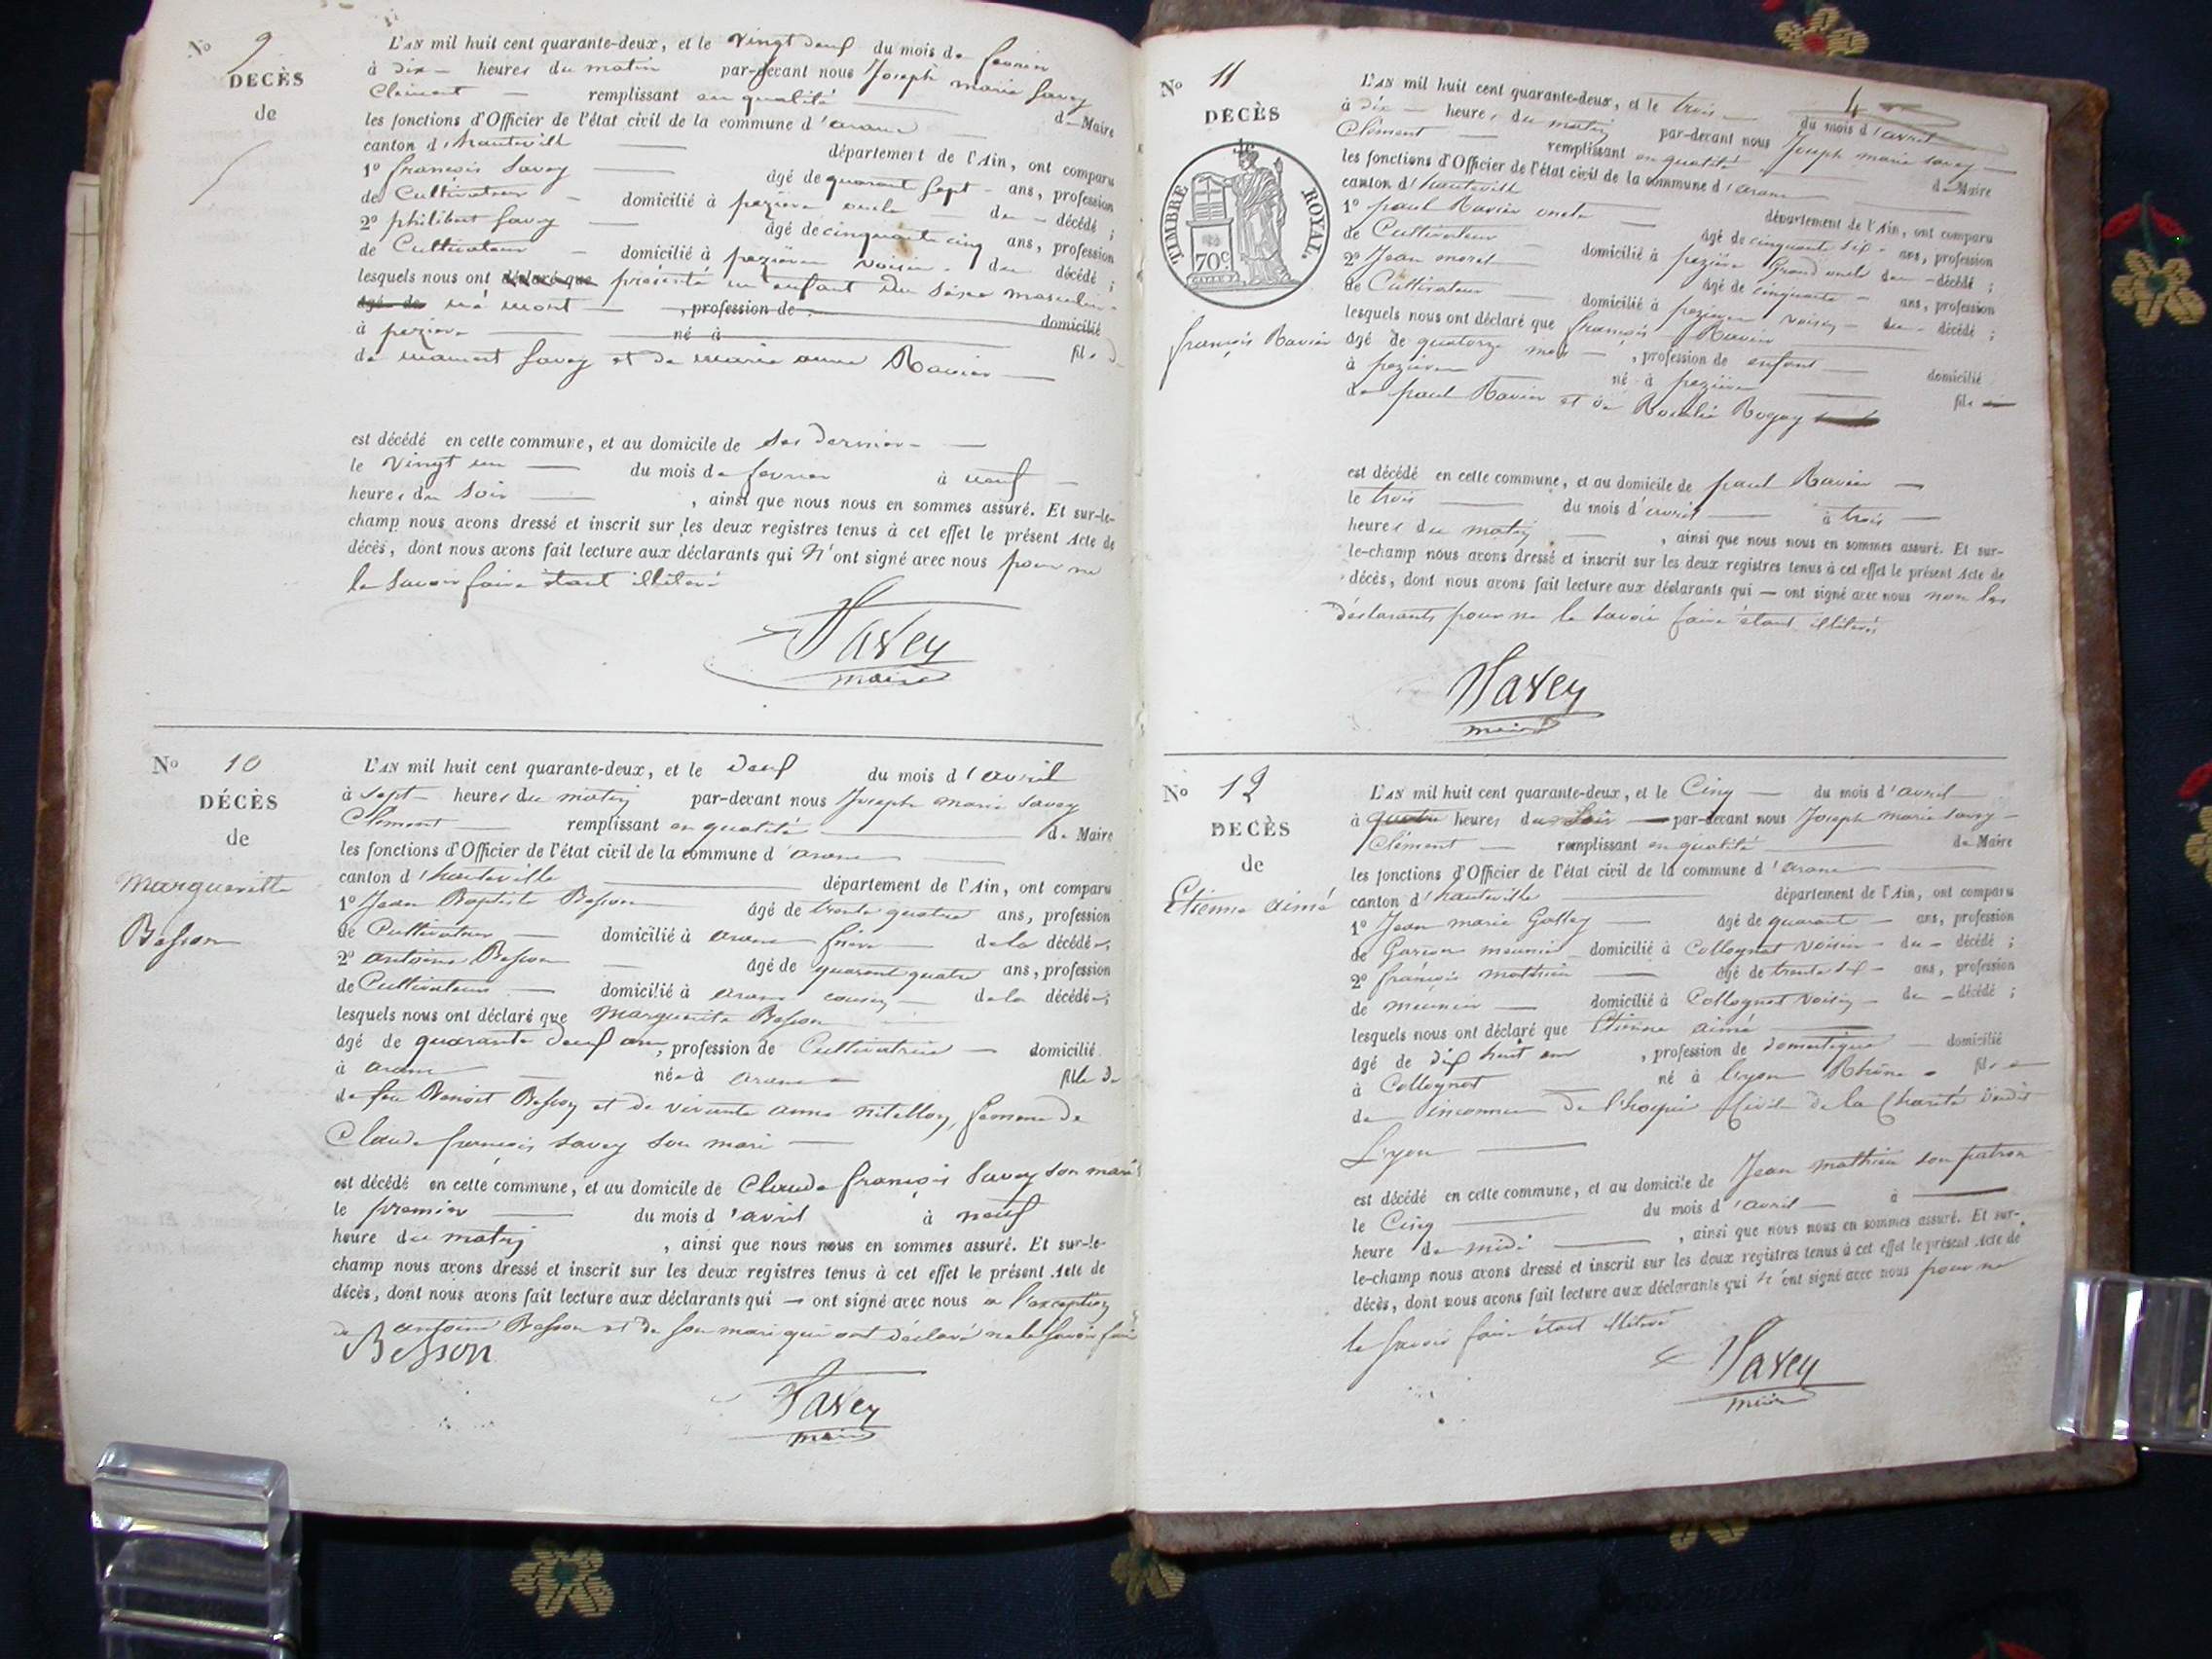 No 9
DECÈS
de
L'AN mil huit cent quarante-deux, et le vingt deux du mois de fevrier
à dix heures du matin par-devant nous Joseph marie Savey
Clément remplissant en qualité de Maire
les fonctions d'Officier de l'état civil de la commune d'aranc
canton d'hauteville département de l'Ain, ont comparu
1º françois Savey âgé de quarant sept ans, profession
de Cultivateur domicilié à pezieres oncle du décédé ;
2º philibert Savey âgé de cinquante cinq ans, profession
de Cultivateur domicilié à pezieres voisin du décédé ;
lesquels nous ont déclaré que présenté un enfant du sexe masculin
âgé de né mort , profession de domicilié
à peziere né à fils
de mamert Savey et de marie anne Ravier
est décédé en cette commune, et au domicile de ses dernier
le vingt un du mois de fevrier à neuf
heures du soir , ainsi que nous nous en sommes assuré. Et sur-le-
champ nous avons dressé et inscrit sur les deux registres tenus à cet effet le présent Acte de
décès, dont nous avons fait lecture aux déclarants qui N'ont signé avec nous pour ne
le savoir faire étant illiteré
Savey
maire
No 10
DÉCÈS
de
Margueritte
Besson
L'AN mil huit cent quarante-deux, et le deux du mois d'avril
à sept heures du matin par-devant nous Joseph marie Savey
Clément remplissant en qualité de Maire
les fonctions d'Officier de l'état civil de la commune d'aranc
canton d'hauteville département de l'Ain, ont comparu
1º Jean Baptiste Besson âgé de trente quatre ans, profession
de Cultivateur domicilié à aranc frère de la décédé ;
2º antoine Besson âgé de quarant quatre ans, profession
de Cultivateur domicilié à aranc cousin de la décédé ;
lesquels nous ont déclaré que Marguerite Besson
âgé de quarante deux ans, profession de Cultivatrice domicilié
à aranc née à aranc fille de
de feu Benoit Besson et de vivante anne , femme de
Claude françois Savey son mari
est décédé en cette commune, et au domicile de Claude françois Savey son mari
le premier du mois d'avril à neuf
heure du matin , ainsi que nous nous en sommes assuré. Et sur-le-
champ nous avons dressé et inscrit sur les deux registres tenus à cet effet le présent Acte de
décès, dont nous avons fait lecture aux déclarants qui ont signé avec nous a l'exception
de antoine Besson et de son mari qui ont déclaré ne le savoir faire
Besson
Savey
maire
4
No 11
DECÈS
TIMBRE ROYAL.
70c.
françois Ravier
L'AN mil huit cent quarante-deux, et le trois du mois d'avril
à dix heures du matin par-devant nous Joseph marie Savey
Clément remplissant en qualité de Maire
les fonctions d'Officier de l'état civil de la commune d'aranc
canton d'hauteville département de l'Ain, ont comparu
1º paul Ravier oncle âgé de cinquante six ans, profession
de Cultivateur domicilié à peziere Grand oncle du décédé ;
2º Jean morel âgé de cinquante ans, profession
de Cultivateur domicilié à peziere voisin du décédé ;
lesquels nous ont déclaré que françois Ravier
âgé de quatorze mois , profession de enfant domicilié
à peziere né à peziere fils
de paul Ravier et de Rosalie Rogay
est décédé en cette commune, et au domicile de paul Ravier
le trois du mois d'avril à trois
heures du matin , ainsi que nous nous en sommes assuré. Et sur-
le-champ nous avons dressé et inscrit sur les deux registres tenus à cet effet le présent Acte de
décès, dont nous avons fait lecture aux déclarants qui ont signé avec nous non les
déclarants pour ne le savoir faire étant illiteré
Savey
maire
No 12
DECÈS
de
Etienne aimé
L'AN mil huit cent quarante-deux, et le Cinq du mois d'avril
à quatre heures du soir par-devant nous Joseph marie Savey
Clément remplissant en qualité de Maire
les fonctions d'Officier de l'état civil de la commune d'aranc
canton d'hauteville département de l'Ain, ont comparu
1º Jean marie Gallay âgé de quarant ans, profession
de Garcon meunier domicilié à Collognat voisin du décédé ;
2º françois mathieu âgé de trente six ans, profession
de meunier domicilié à Collognat voisin du décédé ;
lesquels nous ont déclaré que Etienne aimé
âgé de dix huit ans , profession de domestique domicilié
à Collognat né à Lyon Rhône fils
de inconnu de l'hospice Civil de la Charité dudit
Lyon
est décédé en cette commune, et au domicile de Jean mathieu son patron
le Cinq du mois d'avril à
heure de midi , ainsi que nous nous en sommes assuré. Et sur-
le-champ nous avons dressé et inscrit sur les deux registres tenus à cet effet le présent Acte de
décès, dont nous avons fait lecture aux déclarants qui n'ont signé avec nous pour ne
le savoir faire étant illiteré
Savey
maire